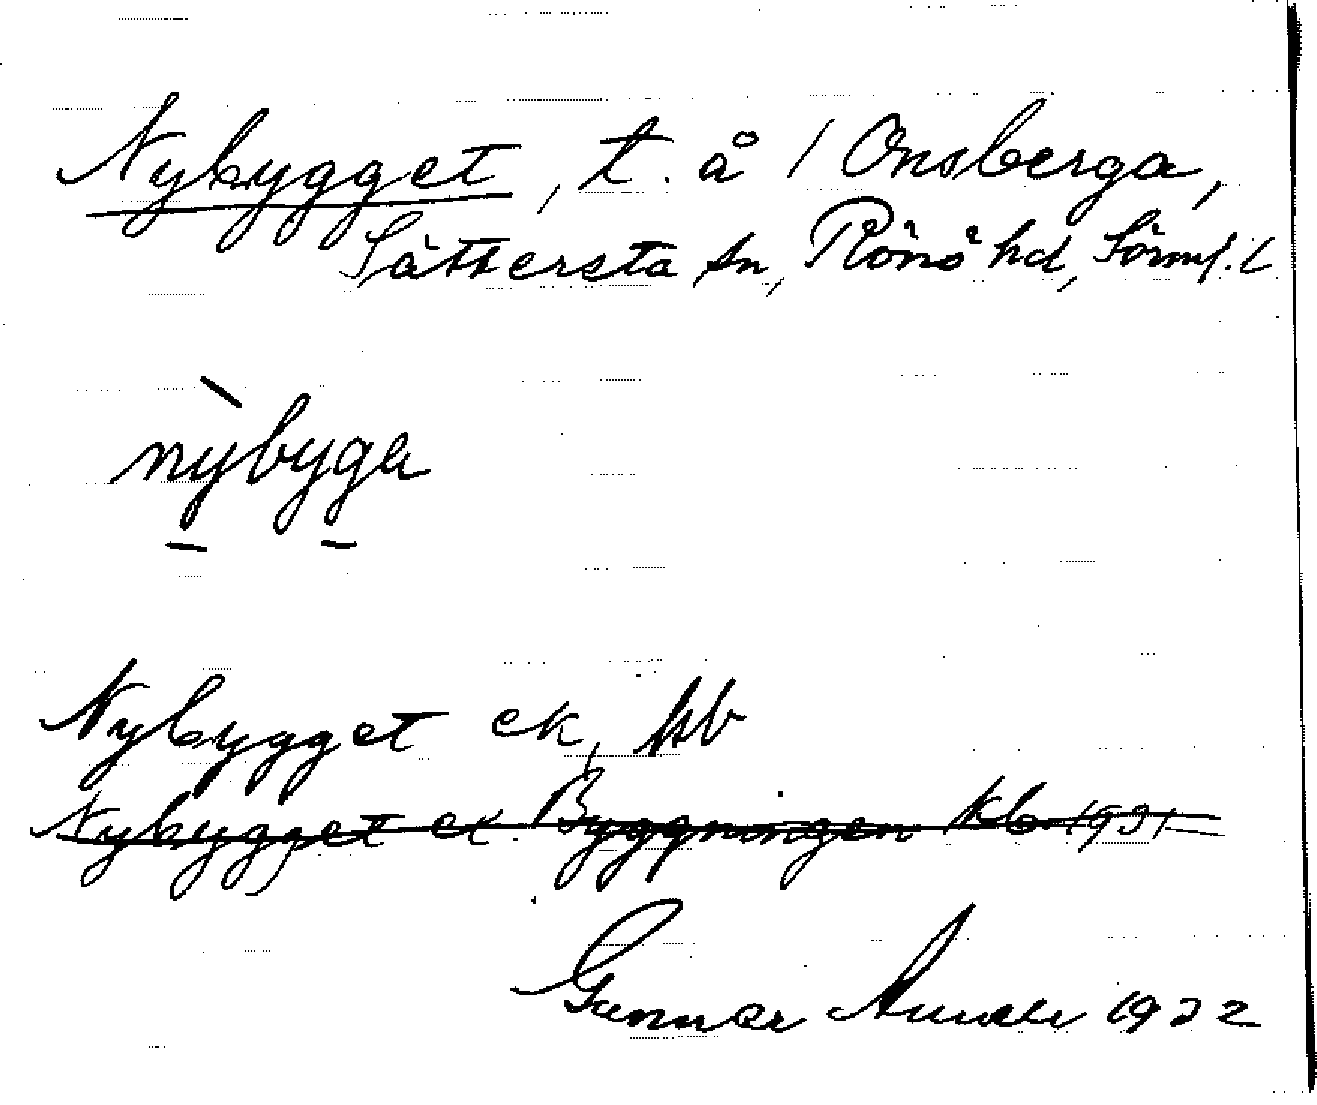 Nybygget, t. å 1 Onsberga,
Sättersta sn, Rönö hd, Sörml. l
nỳbyga
Nybygget ek, kb
Nybygget ek Byggningen kb 1931
Gunnar 1932